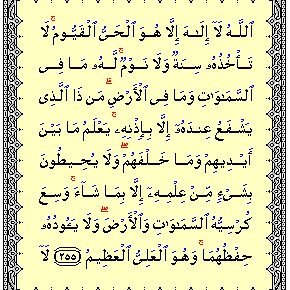 ٱللَّهُ لَآ إِلَـٰهَ إِلَّا هُوَ ٱلْحَىُّ ٱلْقَيُّومُ ۚ لَا
تَأْخُذُهُۥ سِنَةٌ وَلَا نَوْمٌ ۚ لَّهُۥ مَا فِى
ٱلسَّمَـٰوَٰتِ وَمَا فِى ٱلْأَرْضِ ۗ مَن ذَا ٱلَّذِى
يَشْفَعُ عِندَهُۥٓ إِلَّا بِإِذْنِهِۦ ۚ يَعْلَمُ مَا بَيْنَ
أَيْدِيهِمْ وَمَا خَلْفَهُمْ ۖ وَلَا يُحِيطُونَ
بِشَىْءٍ مِّنْ عِلْمِهِۦٓ إِلَّا بِمَا شَآءَ ۚ وَسِعَ
كُرْسِيُّهُ ٱلسَّمَـٰوَٰتِ وَٱلْأَرْضَ ۖ وَلَا يَـُٔودُهُۥ
حِفْظُهُمَا ۚ وَهُوَ ٱلْعَلِىُّ ٱلْعَظِيمُ ﴿٢٥٥﴾ لَآ